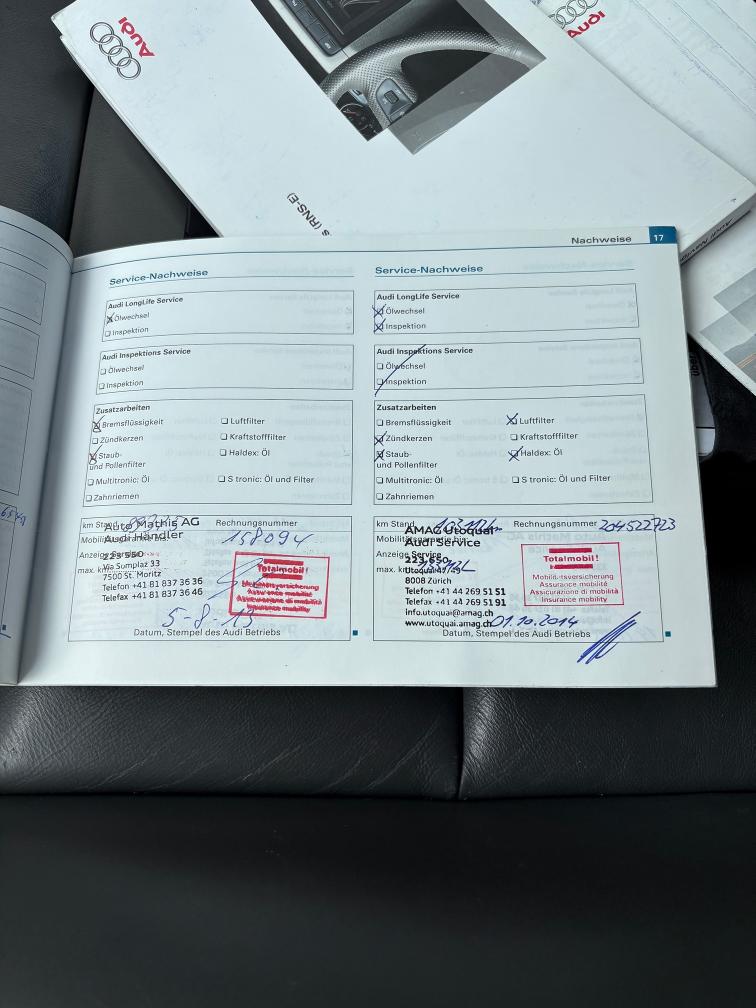 Audi
Audi
s (RNS-E)
Nachweise 17
Service-Nachweise
Audi LongLife Service
Ölwechsel
Inspektion
Audi Inspektions Service
Ölwechsel
Inspektion
Zusatzarbeiten
Bremsflüssigkeit
Luftfilter
Zündkerzen
Kraftstofffilter
Staub-
und Pollenfilter
Haldex: Öl
Multitronic: Öl
S tronic: Öl und Filter
Zahnriemen
km Stand
Rechnungsnummer
158094
Auto Mathis AG
Audi Händler
Via Somplaz 33
7500 St. Moritz
Telefon +41 81 837 36 36
Telefax +41 81 837 36 46
max. km
Totalmobil!
Mobilitätsversicherung
Assurance mobilité
Assicurazione di mobilità
Insurance mobility
5-8-13
Datum, Stempel des Audi Betriebs
Service-Nachweise
Audi LongLife Service
Ölwechsel
Inspektion
Audi Inspektions Service
Ölwechsel
Inspektion
Zusatzarbeiten
Bremsflüssigkeit
Luftfilter
Zündkerzen
Kraftstofffilter
Staub-
und Pollenfilter
Haldex: Öl
Multitronic: Öl
S tronic: Öl und Filter
Zahnriemen
km Stand
Rechnungsnummer 204522723
AMAG Utoquai
Audi Service
223,650
Utoquai 47/49
8008 Zürich
Telefon +41 44 269 51 51
Telefax +41 44 269 51 91
info.utoquai@amag.ch
www.utoquai.amag.ch
Totalmobil!
Mobilitätsversicherung
Assurance mobilité
Assicurazione di mobilità
Insurance mobility
01.10.2014
Datum, Stempel des Audi Betriebs